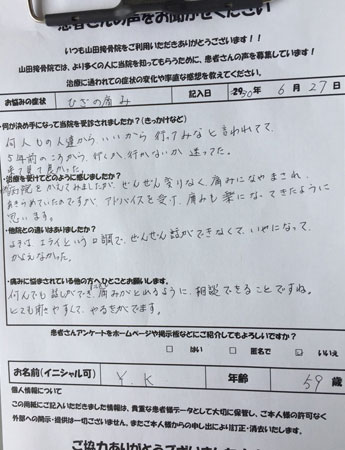 患者さんの声をお聞かせください
いつも山田接骨院をご利用いただきありがとうございます！！
山田接骨院では、より多くの人に当院を知ってもらうために、患者さんの声を募集しています！
治療に通われての症状の変化や率直な感想を教えてください。
お悩みの症状 ひざの痛み 記入日 30年 6月 27日
・何が決め手になって当院を受診されましたか？（きっかけなど）
何人もの人達から いいから 行ってみなと言われてて
5年前のころから、行くか、行かないか 迷ってた。
来て見て良かった。
・治療を受けてどのように感じましたか？
病院をかえてみましたが、ぜんぜん変りなく、痛みになやまされ、
あきらめていたのですが、アドバイスを受け、痛みも楽になってきたように
思います。
・他院との違いはありましたか？
エライという口調で、ぜんぜん話ができなくて、いやになって、
かよえなかった。
・痛みに悩まされている他の方へひとことお願いします。
何んでも話しができ、痛みがとれるように、相談できることですね。
とても話やすくて、やる気がでます。
患者さんアンケートをホームページや掲示板などにご紹介してもよろしいですか？
□ はい □ 匿名で ☑ いいえ
お名前（イニシャル可） Y. K 年齢 59 歳
個人情報について
この用紙にご記入いただきました情報は、貴重な患者様データとして大切に保管し、ご本人様の許可なく
外部への開示・提供は一切ございません。またご本人様からの申し出により訂正・消去いたします。
ご協力ありがとうございました